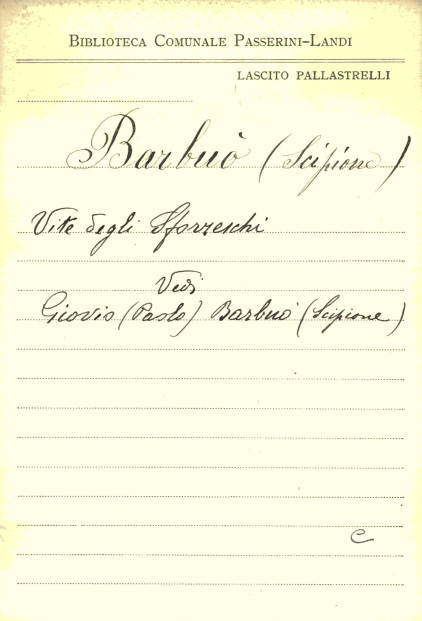 BIBLIOTECA COMUNALE PASSERINI-LANDI
LASCITO PALLASTRELLI
Barbuò (Scipione)
Vite degli Sforzeschi
Vedi
Giovio (Paolo) Barbuò (Scipione)
C